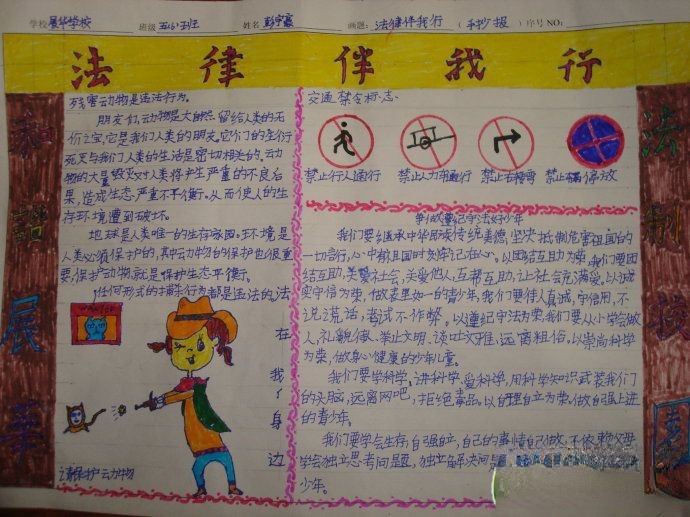 学校 展华学校 班级 五(6)班 姓名 画题: 法律伴我行 (手抄报) 序号 NO:
法律伴我行
和谐展华
法制校
残害动物是违法行为。
朋友们,动物是大自然留给人类的无
价之宝,它是我们人类的朋友。它们的繁衍
死灭与我们人类的生活是密切相关的。动
物的大量毁灭对人类将产生严重的不良后
果,造成生态严重不平衡。从而使人的生
存环境遭到破坏。
地球是人类唯一的生存家园。环境是
人类必须保护的,其中动物的保护也很重
要,保护动物就是保护生态平衡。
任何形式的捕杀行为都是违法的
WANTED
法在我们身边
请保护动物
交通禁令标志
禁止行人通行 禁止人力车通行 禁止右转弯 禁止停放
争做遵纪守法好少年
我们要继承中华民族传统美德,坚决抵制危害祖国的
一切言行,心中有祖国时刻牢记在心。以团结互助为荣,我们要团
结互助,关爱社会,关爱他人,互帮互助,让社会充满爱。以诚
实守信为荣,做表里如一的青少年,我们要待人真诚,守信用,不
说谎话,考试不作弊。以遵纪守法为荣,我们要从小学会做
人,礼貌做、举止文明、谈吐文雅,远离粗俗。以崇尚科学
为荣,做身心健康的少年儿童。
我们要学科学,讲科学,爱科学,用科学知识武装我们
的头脑,远离网吧,拒绝毒品。以自理自立为荣,做自强上进
的青少年。
我们要学会生存,自强自立,自己的事情自己做,不依赖父母
学会独立思考问题,独立解决问
少年。